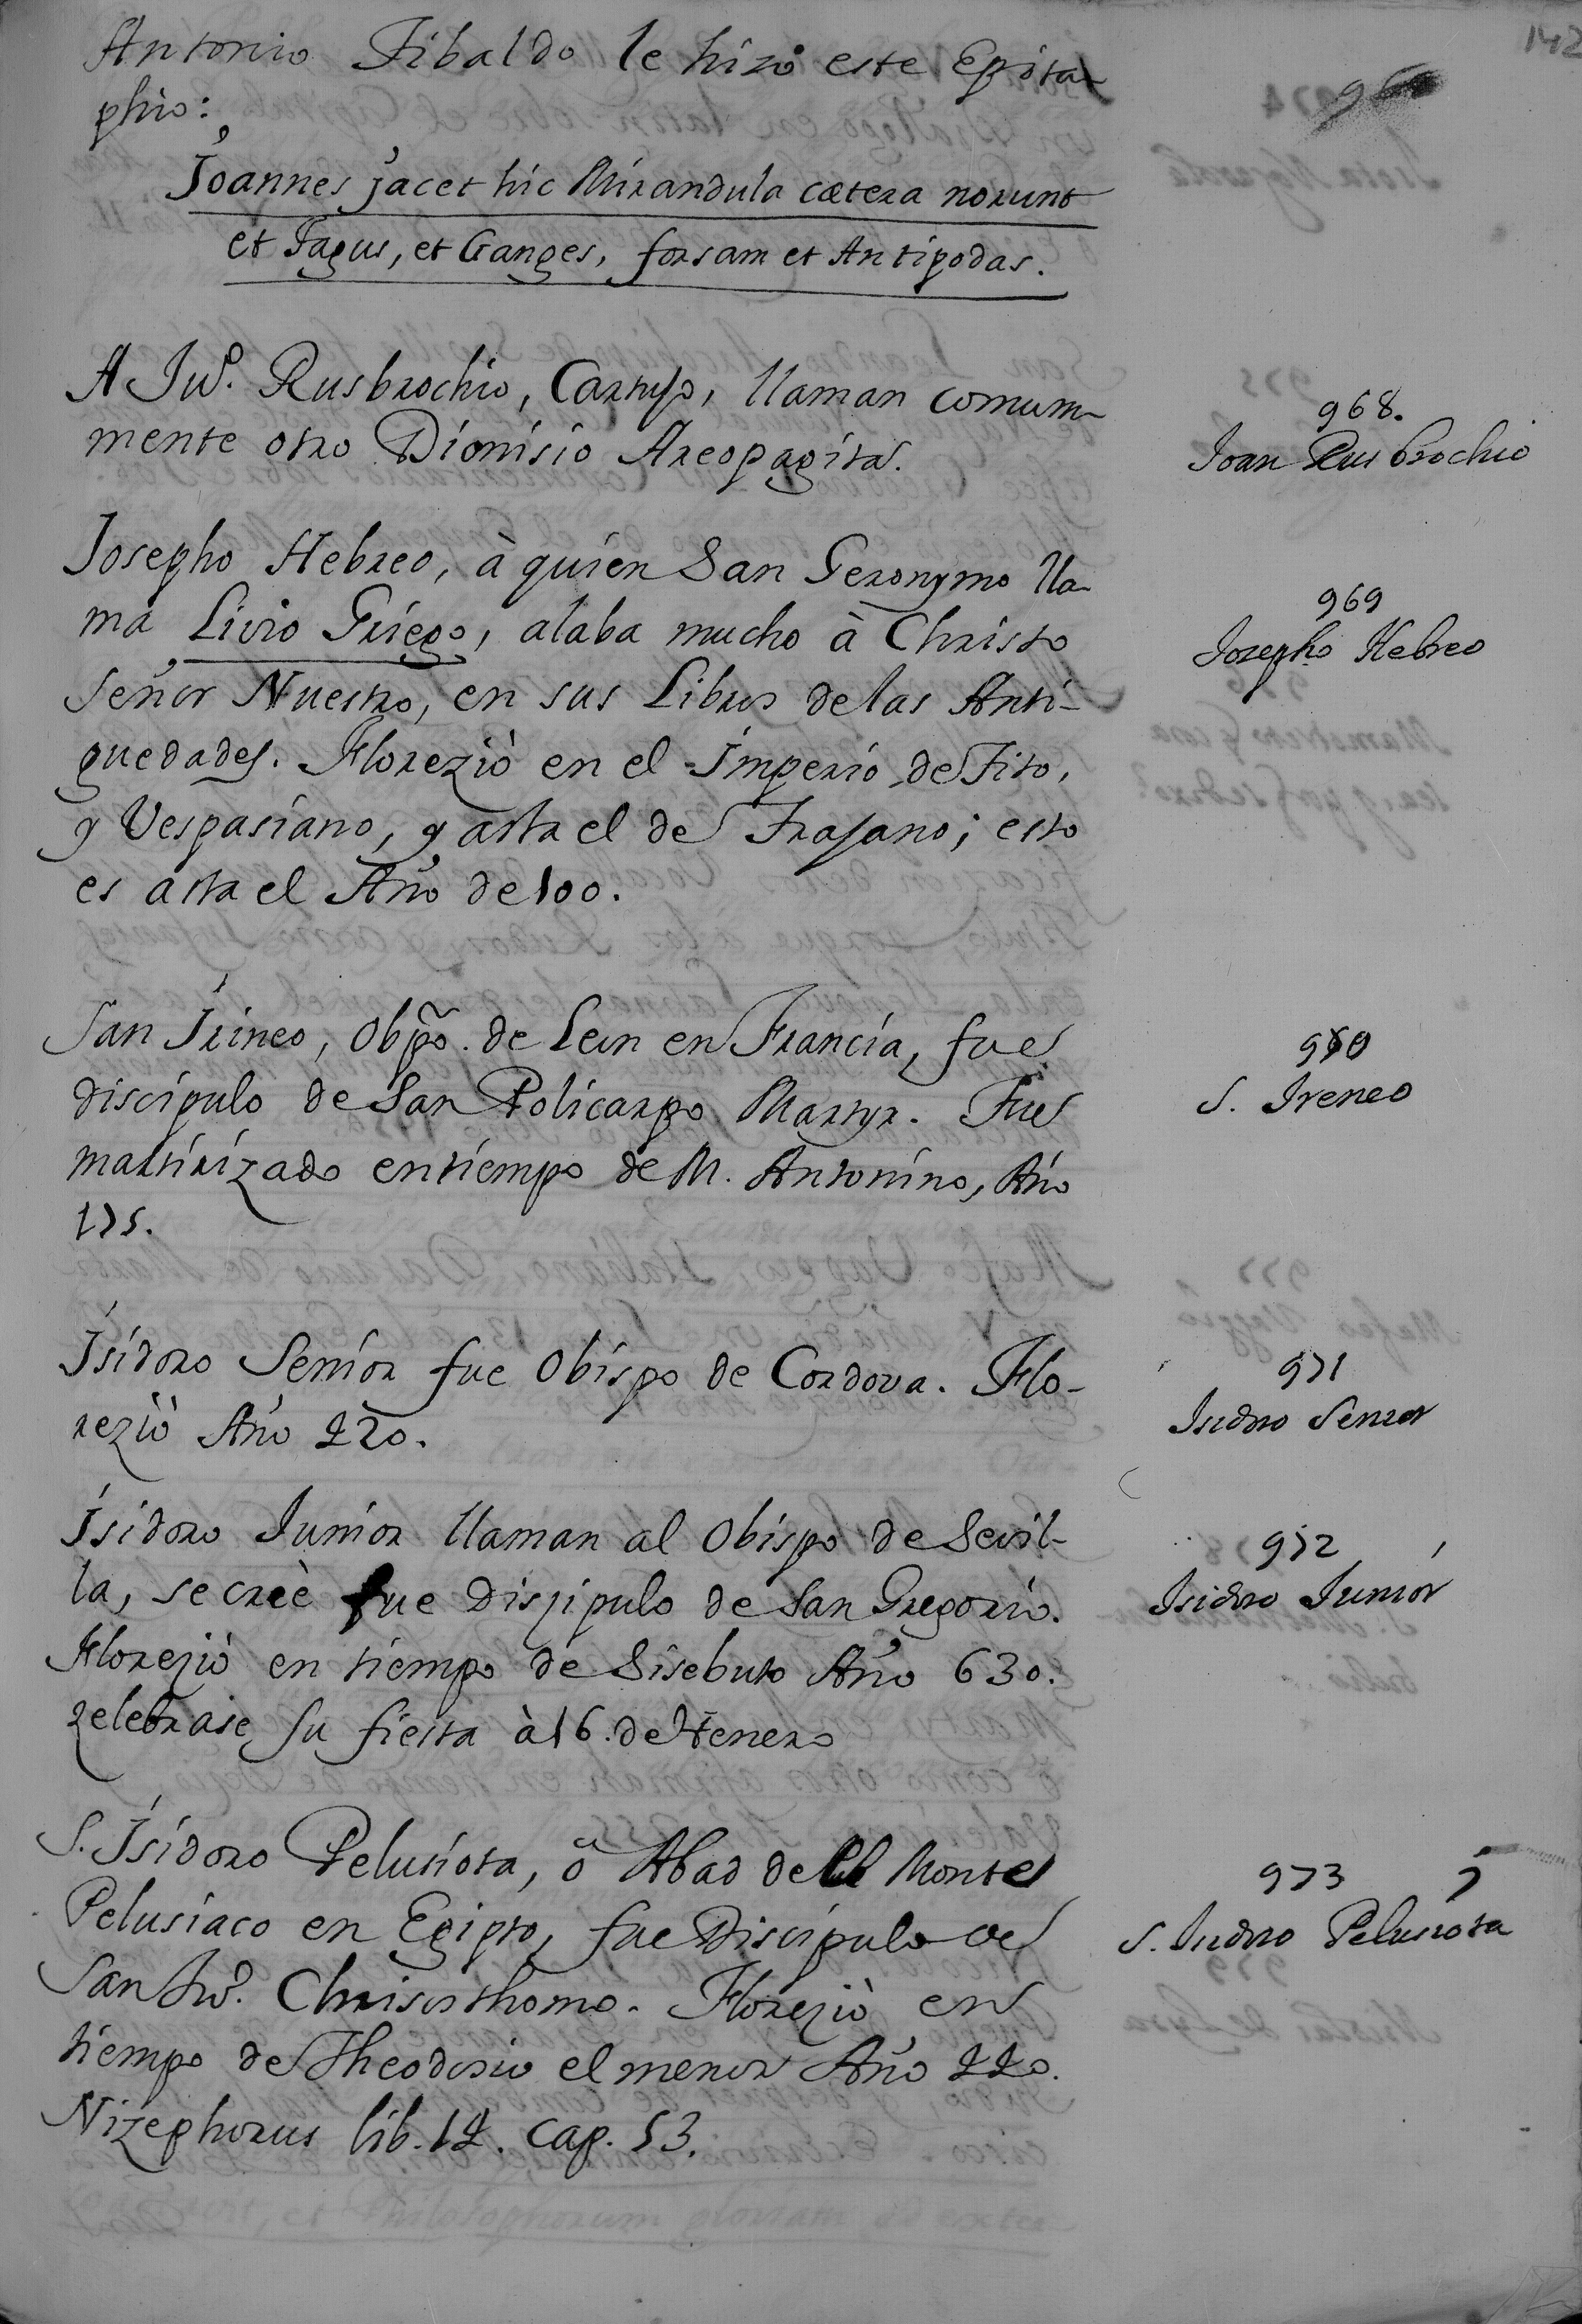 142
96
Antonio Tibaldo le hizo este Epita-
phio:
Joannes jacet hic Mirandula cætera norunt
et Tagus, et Ganges, forsam et Antipodas.
A Juº. Rusbrochio, Cartujo, llaman comum-
mente otro Dionisio Areopagita.
968.
Joan Rusbrochio
Josepho Hebreo, à quien San Geronymo lla-
ma Livio Griego, alaba mucho à Christo
Señor Nuestro, en sus Libros de las Anti-
guedades. Florezió en el Imperio de Tito,
y Vespasiano, y asta el de Trajano; esto
es asta el Año de 100.
969
Josepho Hebreo
San Irineo, Obpõ. de Leon en Francia, fue
discipulo de San Policarpo Martyr. Fue
martirizado en tiempo de M. Antonino, Año
175.
970
S. Ireneo
Isidoro Senior fue Obispo de Cordova. Flo-
rezió Año 420.
971
Isidoro Senior
Isidoro Junior llaman al Obispo de Sevil-
la, se creè fue Diszipulo de San Gregorio.
Florezió en tiempo de Sisebuto Año 630.
zelebrase su fiesta à 16. de Henero
972
Isidoro Junior
S. Isidoro Pelusiota, ò Abad de el Monte
Pelusiaco en Egipto, fue Discipulo de
San Juº. Chrisosthomo. Florezió en
tiempo de Theodosio el menor Año 440.
Nizephorus lib. 14. cap. 53.
973
S. Isidoro Pelusiota